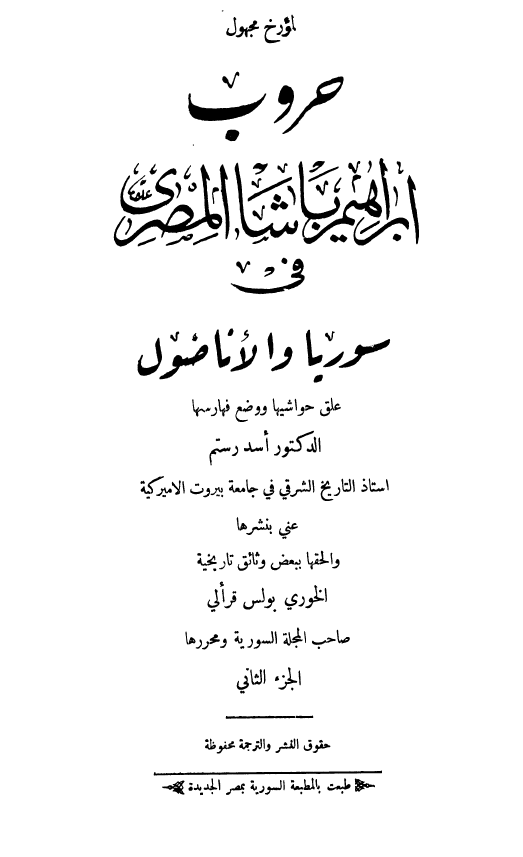 لمؤرخ مجهول
حروب
ابراهيم باشا المصري
في
سوريا والأناضول
علق حواشيها ووضع فهارسها
الدكتور أسد رستم
استاذ التاريخ الشرقي في جامعة بيروت الاميركية
عني بنشرها
والحقها ببعض وثائق تاريخية
الخوري بولس قرألي
صاحب المجلة السورية ومحررها
الجزء الثاني
حقوق النشر والترجمة محفوظة
طبعت بالمطبعة السورية بمصر الجديدة